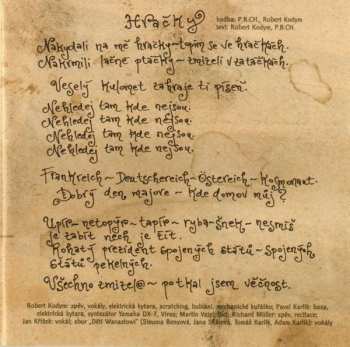 Hračky
hudba: P.B.CH., Robert Kodym
text: Robert Kodym, P.B.CH.
Nakydali na mě hračky~topím se ve hračkách.
Nakrmili lačné ptáčky~zmizeli v zatáčkách.
Veselý kulomet zahraje ti píseň.
Nehledej tam kde nejsou.
Nehledej tam kde nejsou.
Nehledej tam kde nejsou.
Nehledej tam kde nejsou.
Frankreich~Deutschereich~Östereich~Kosmonaut.
Dobrý den majore~kde domov můj?
Upír~netopýr~tapír~ryba~šnek~nesmíš
je zabít nech je žít.
Rohatý prezident spojených států~spojených
států pekelných.
Všechno zmizelo~potkal jsem věčnost.
Robert Kodym: zpěv, vokály, elektrická kytara, scratching, bubínki, mechanické kuřátko; Pavel Karlík: basa,
elektrická kytara, syntezátor Yamaha DX-7, Virus; Martin Vajgl: bicí; Richard Müller: zpěv, recitace;
Jan Křížek: vokál; sbor „Děti Wanastowi" (Simona Benyová, Jana Karlík, Tomáš Karlík, Adam Karlík): vokály